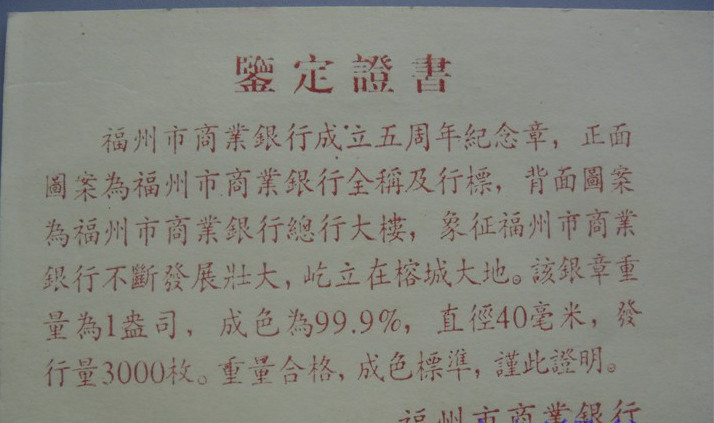 鑒定證書
福州市商業銀行成立五周年紀念章，正面
圖案為福州市商業銀行全稱及行標，背面圖案
為福州市商業銀行總行大樓，象征福州市商業
銀行不斷發展壯大，屹立在榕城大地。該銀章重
量為1盎司，成色為99.9%，直徑40毫米，發
行量3000枚。重量合格，成色標準，謹此證明。
福州市商業銀行